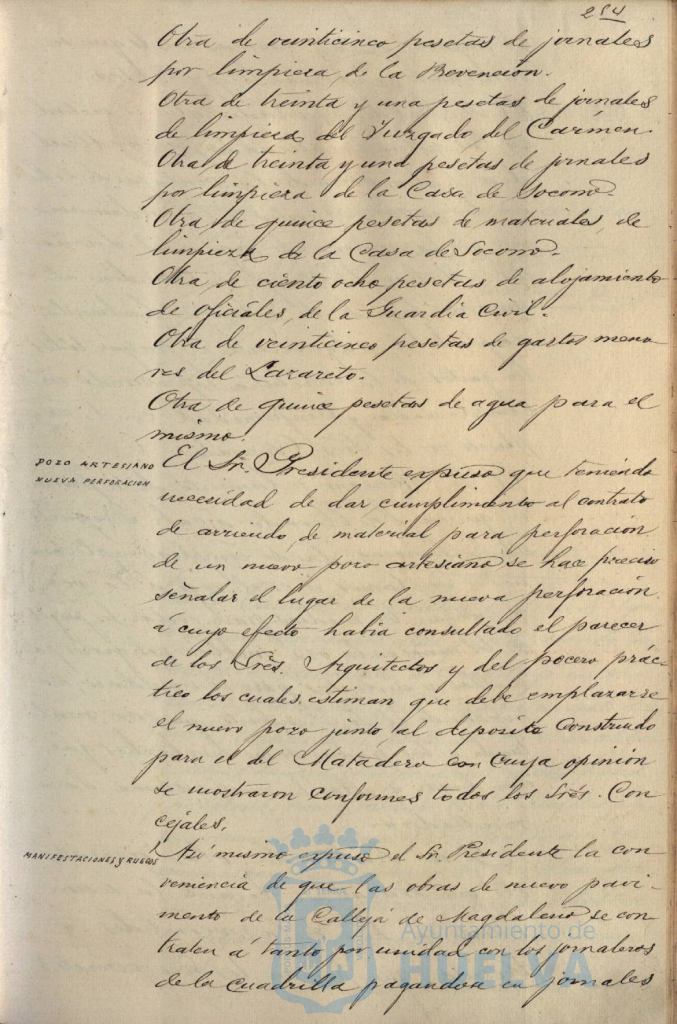 254
Otra de veinticinco pesetas de jornales
por limpieza de la Prevención.
Otra de treinta y una pesetas de jornales
de limpieza del Juzgado del Cármen.
Otra de treinta y una pesetas de jornales
por limpieza de la Casa de Socorro.
Otra de quince pesetas de materiales de
limpieza de la Casa de Socorro.
Otra de ciento ocho pesetas de alojamiento
de oficiales de la Guardia Civil.
Otra de veinticinco pesetas de gastos meno-
res del Lazareto.
Otra de quince pesetas de agua para el
mismo.
POZO ARTESIANO
NUEVA PERFORACION
El Sr. Presidente expuso que teniendo
necesidad de dar cumplimiento al contrato
de arriendo de material para perforación
de un nuevo pozo artesiano se hace preciso
señalar el lugar de la nueva perforación
á cuyo efecto habia consultado el parecer
de los Srés. Arquitectos y del pocero prác-
tico los cuales estiman que debe emplazarse
el nuevo pozo junto al deposito construido
para el del Matadero con cuya opinión
se mostraron conformes todos los Srés. Con
cejales.
MANIFESTACIONES Y RUEGOS
Asi mismo expuso el Sr. Presidente la con
veniencia de que las obras de nuevo pavi-
mento de la Calleja de Magdalena se con
traten á tanto por unidad con los jornaleros
de la cuadrilla pagandose en jornales
Ayuntamiento de
HUELVA